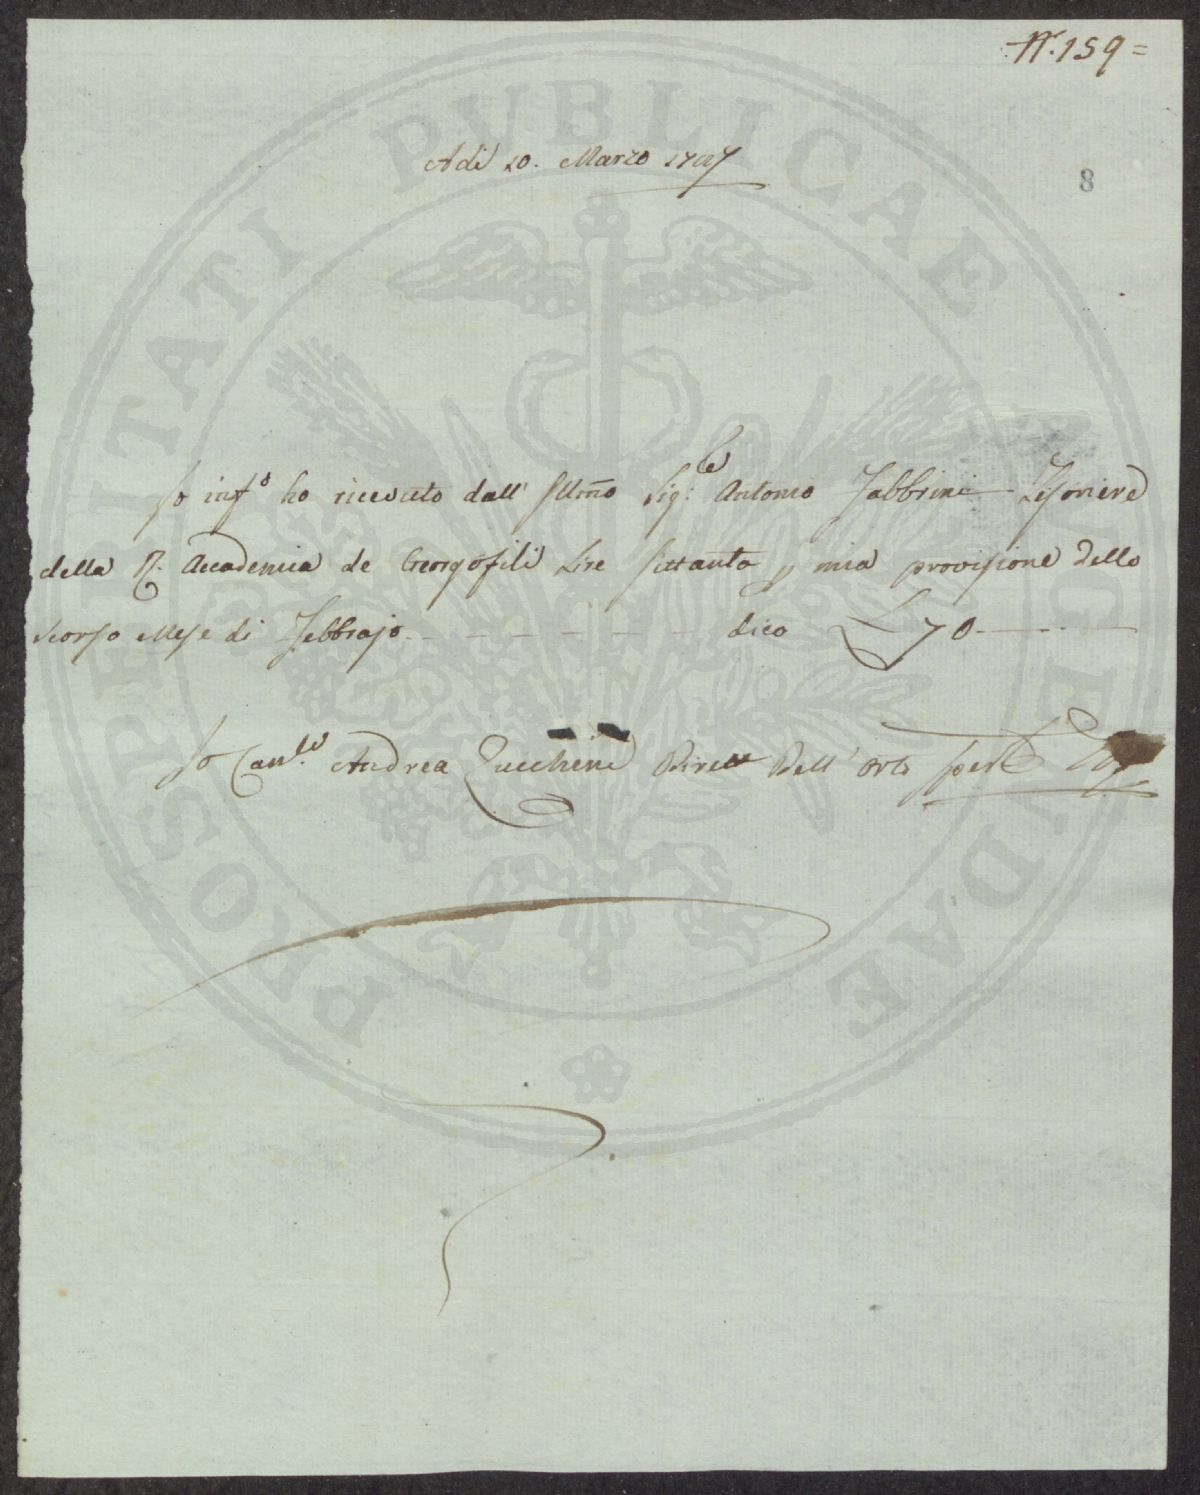 N. 159=
Adi 10. Marzo 1787
8
Io inf.o ho ricevuto dall' Illmo Sig.le Antonio Fabbrini Tesoriere
della R. Accademia de Georgofili Lire settanta p mia provisione dello
scorso Mese di Febbrajo - - - - - - - dico L 70 — - —
Io Can.co Andrea Zucchini Dirett Dell' Orto sper
PROSPERITATI PUBLICAE AUGENDAE